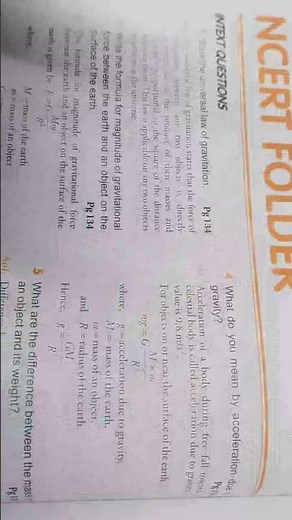 NCERT FOLDER
INTEXT QUESTIONS
universal law of gravitation. Pg 134
law of gravitation states that the force of
between any two objects is directly
proportional to the product of their masses and
square of the distance
This law is applicable on any two objects
the formula for magnitude of gravitational
force between the earth and an object on the
surface of the earth. Pg 134
formula for magnitude of gravitational force
between the earth and an object on the surface of the
earth is given by
where, M = mass of the earth
m = mass of an object
4 What do you mean by acceleration due
gravity?
Acceleration of a body during free fall
celestial body is called acceleration due to
value is 9.8 m/s².
For objects on or near the surface of the earth
mg = G M × m / R²
where, g = acceleration due to gravity,
M = mass of the earth,
m = mass of an object,
and R = radius of the earth.
Hence, g = GM / R²
5 What are the difference between the mass
an object and its weight?